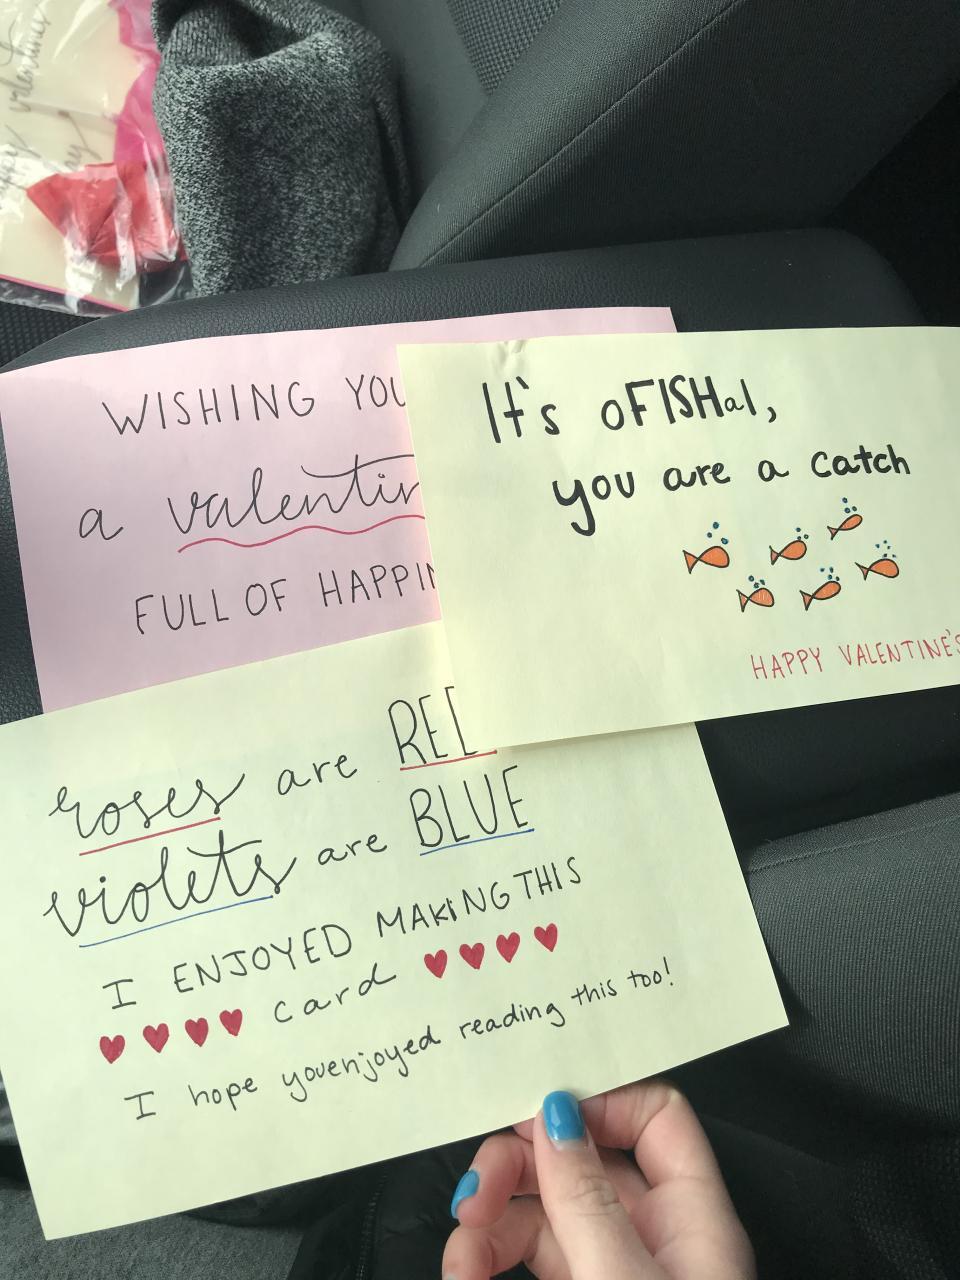 happy valentine's
day
WISHING YOU
a valentin
FULL OF HAPPIN
It's oFISHal,
you are a catch
HAPPY VALENTINE'S
roses are RED
violets are BLUE
I ENJOYED MAKING THIS
♥♥♥♥ card ♥♥♥♥
I hope you enjoyed reading this too!